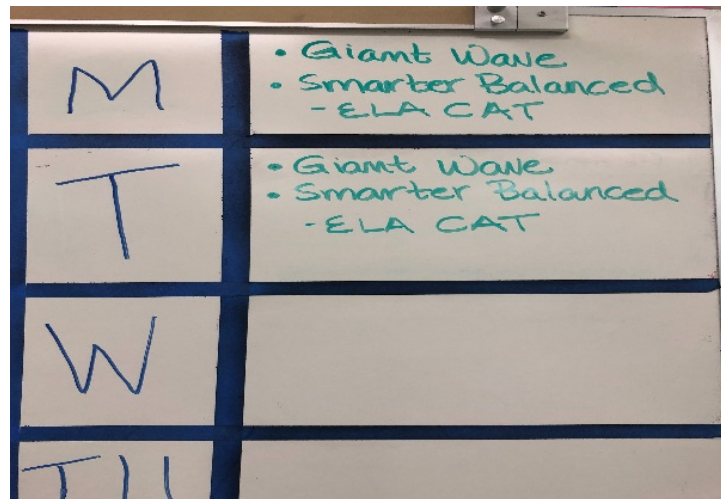 M
• Giant Wave
• Smarter Balanced
- ELA CAT
T
• Giant Wave
• Smarter Balanced
- ELA CAT
W
TH